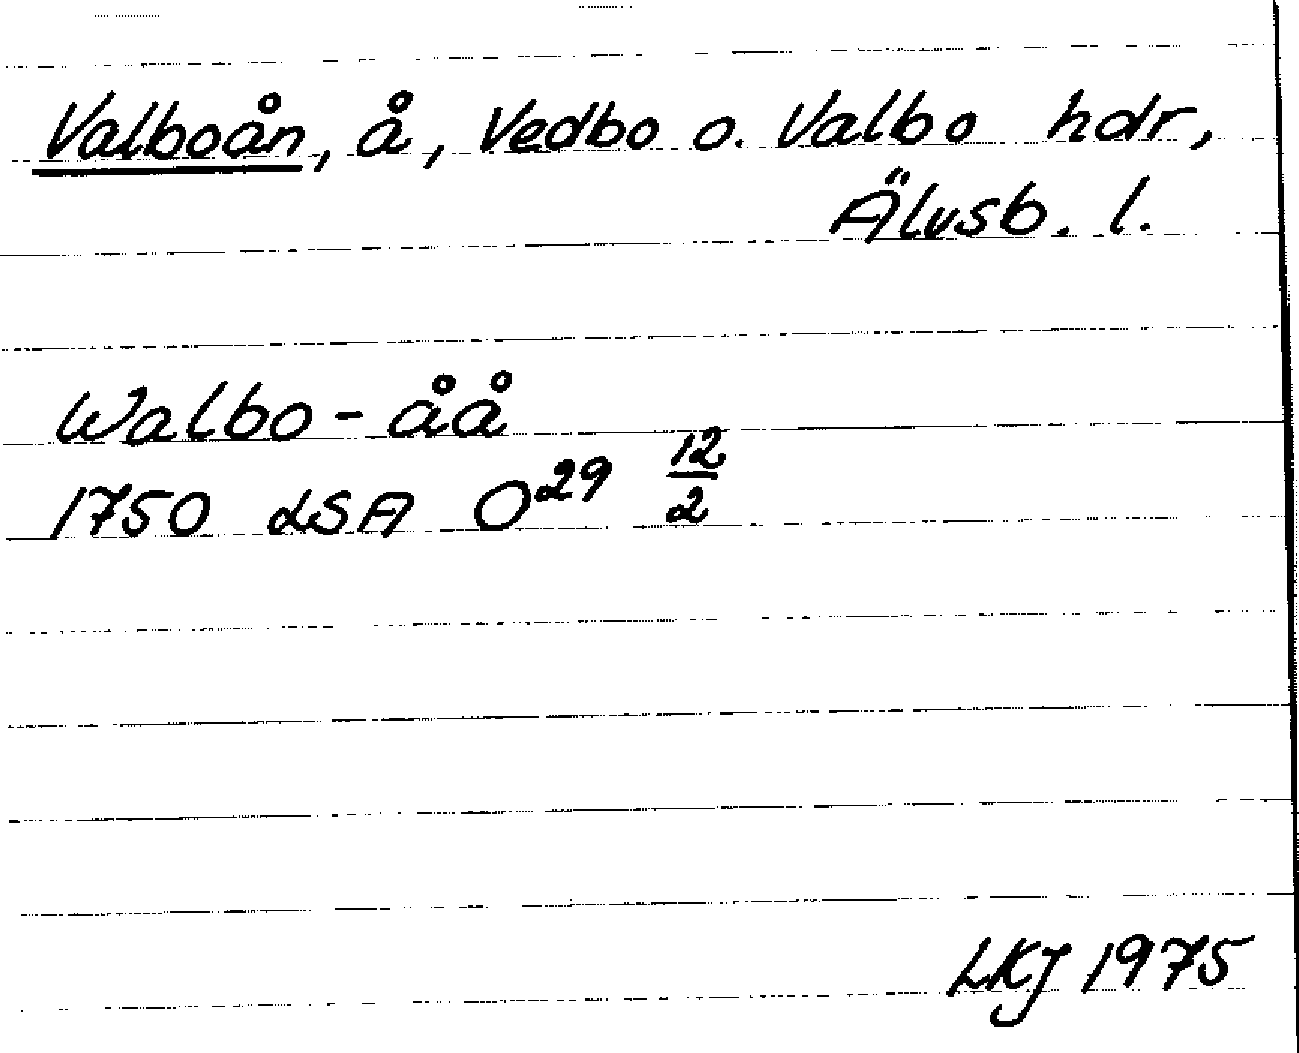 Valboån, å, Vedbo o. Valbo hdr,
Älvsb. l.
Walbo-åå
1750 LSA O29 12/2
LKJ 1975